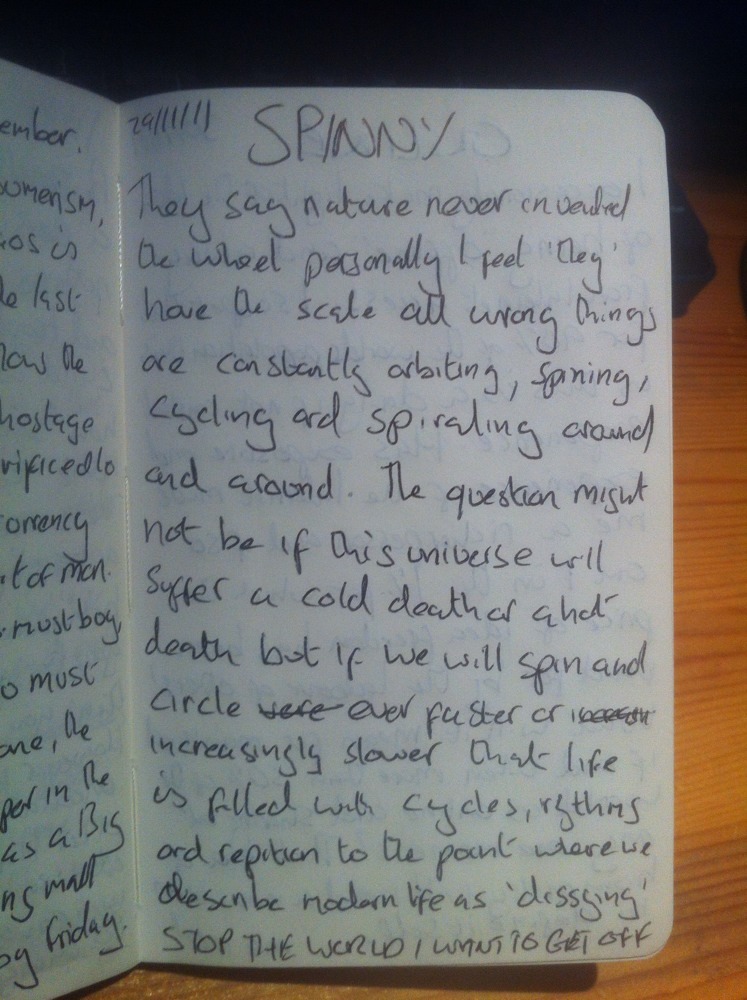 ember.
umerism,
os is
le last
how the
hostage
rificed to
urrency
t of man.
must buy,
o must
one, the
per in the
as a Big
ng mall
og friday.
29/11/11
SPINNY
They say nature never invented
the wheel personally I feel 'they'
have the scale all wrong things
are constantly orbiting, spining,
cycling and spiraling around
and around. The question might
not be if this universe will
suffer a cold death or a hot
death but if we will spin and
circle were ever faster or
increasingly slower that life
is filled with cycles, rythms
and repition to the point where we
describe modern life as 'dissying'
STOP THE WORLD I WANT TO GET OFF